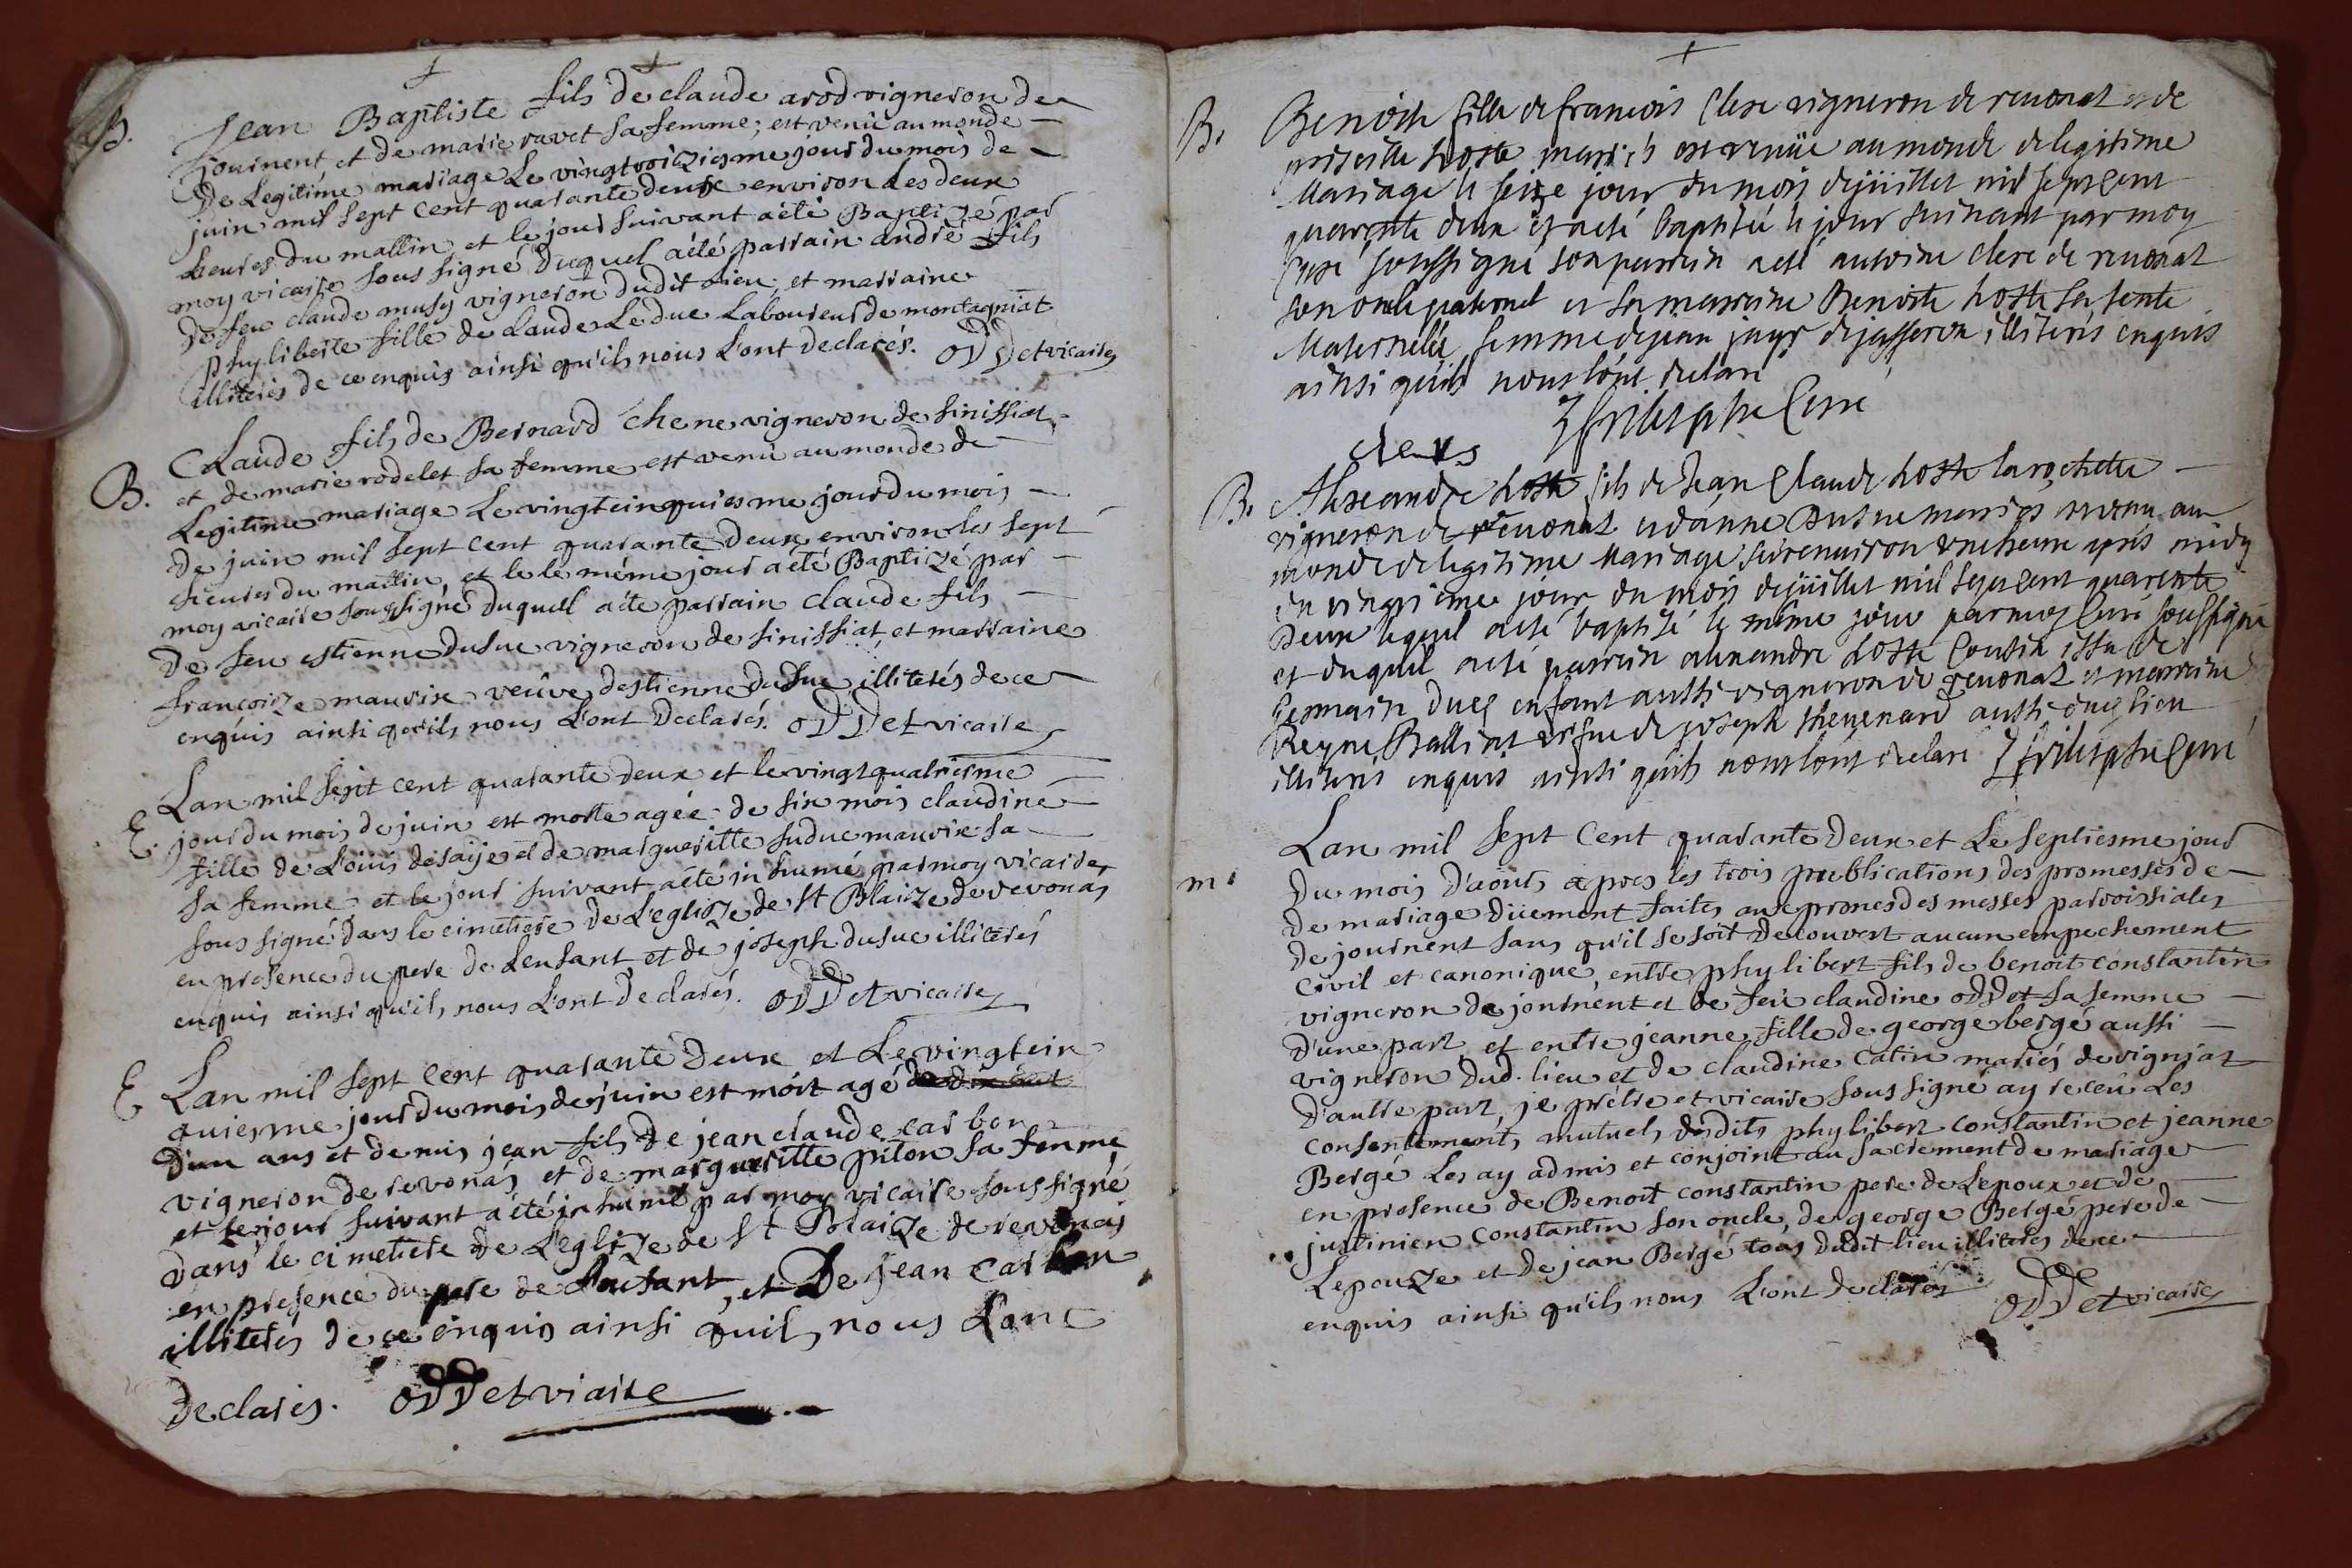 B. Jean Baptiste fils de claude arod vigneron de
journent, et de marie ravet sa femme, est venû au monde
de Legitime mariage Le vingtroizieme jour du mois de
juin mil sept cent quarante deux environ les deux
heures du mattin, et le jour suivant a été Baptizé par
moy vicaire sous signé, duquel a été parrain andré fils
de feu claude musy vigneron dudit lieu, et marraine
phyliberte fille de claude Le duc Laboureur de montagniat
illiterés de ce enquis ainsi qu'ils nous L'ont declarés. oDDet vicaire
B. Claude fils de Bernard chene vigneron de sinissiat
et de marie rodelet sa femme est venû au monde de
Legitime mariage Le vingtcinquiesme jour du mois
de juin mil sept cent quarante deux environ les sept
heures du mattin, et le le même jour a été Baptizé par
moy vicaire soussigné duquel a été parrain claude fils
de feu estienne dusuc vigneron de sinissiat et marraine
françoize mauvise veûve destienne dusuc illiterés de ce
enquis ainsi qu'ils nous L'ont declarés. oDDet vicaire
E. Lan mil sept cent quarante deux et le vingtquatriesme
jour du mois de juin est morte agée de six mois claudine
fille de Loüis desaije et de margueritte sudue mauvise sa
sa femme et le jour suivant a été inhumé par moy vicaire
sous signé dans le cimetiere de L'eglize de St Blaize de revonas
en presence du pere de Lenfant et de joseph dusuc illiterés
enquis ainsi qu'ils nous L'ont declarés. oDDet vicaire
E Lan mil sept cent quarante deux et Le vingtcin
quiesme jour du mois de juin est mort agé
d'un ans et demis jean fils de jean claude carbon
vigneron de revonas et de margueritte piton sa femme
et le jour suivant a été inhumé par moy vicaire sous signé
dans le cimetiere de L'eglize de St Blaize de revonas
en presence du pere de Lenfant, et De jean carbon
illiterés de ce enquis ainsi quils nous Lont
Declarés. oDDet viaire
B. Benoite fille de francois Clere vigneron de revonat et de
hoste mariés est venüe au monde de legitime
Mariage le seize jour du mois de jüillet mil sept cent
quarente deux et a eté baptisée le jour suivant par moy
Curé soussigné son parrein a eté antoine clere de revonat
son oncle paternel et sa marreine Benoite hoste sa tente
Maternelle femme de jean de jasseron illiterés enquis
ainsi quils nous lont declaré
Curé
clerc
B. Alexandre hoste fils de Jean Claude hoste la rochette
vigneron de revonat et d'anne Dusuc mariés est venu au
monde de legitime Mariage sur environ une heure après midy
le vingtième jour du mois de jüillet mil sept cent quarente
Deux lequel a eté baptisé le même jour par moy Curé soussigné
et duquel a eté parrein alexandre hoste Cousin issu de
Germain dud enfant aussi vigneron de revonat et marreine
Reyne Balliat vefve de joseph thevenard aussi dud lieu
illiterés enquis ainsi quils nous lont declaré Curé
m. Lan mil sept cent quarante deux et Le septiesme jour
du mois d'aout, apres les trois publications des promesses de
de mariage düement faites aux prones des messes parroissiales
de journent sans qu'il se soit decouvert aucun empechement
civil et canonique, entre phylibert fils de benoit constantin
vigneron de journent et de feüe claudine oddet sa femme
d'une part, et entre jeanne fille de george bergé aussi
vigneron dud. lieu et de claudine Catin mariés de vigniat
d'autre part, je prêtre et vicaire sous signé ay receu Les
consentements mutuels desdits phylibert constantin et jeanne
Bergé Les ay admis et conjoint au sacrement de mariage
en presence de Benoit constantin pere de Lepoux et de
justinien constantin son oncle, de george Bergé pere de
Lepouze et de jean Bergé tous dudit lieu illiterés de ce
enquis ainsi qu'ils nous L'ont declarés oDDet vicaire